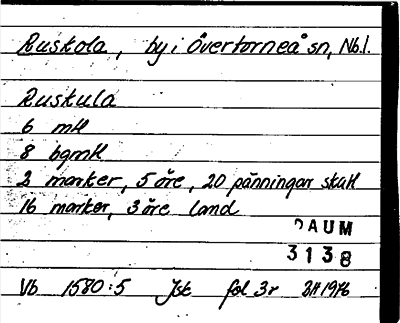 Ruskola, by i Övertorneå sn, Nb.l.
Ruskula
6 mtl
8 bgmtl
2 marker, 5 öre, 20 pänningar skatt
16 marker, 3 öre land
DAUM
3138
Vb 1580:5 Jsk fol 3r